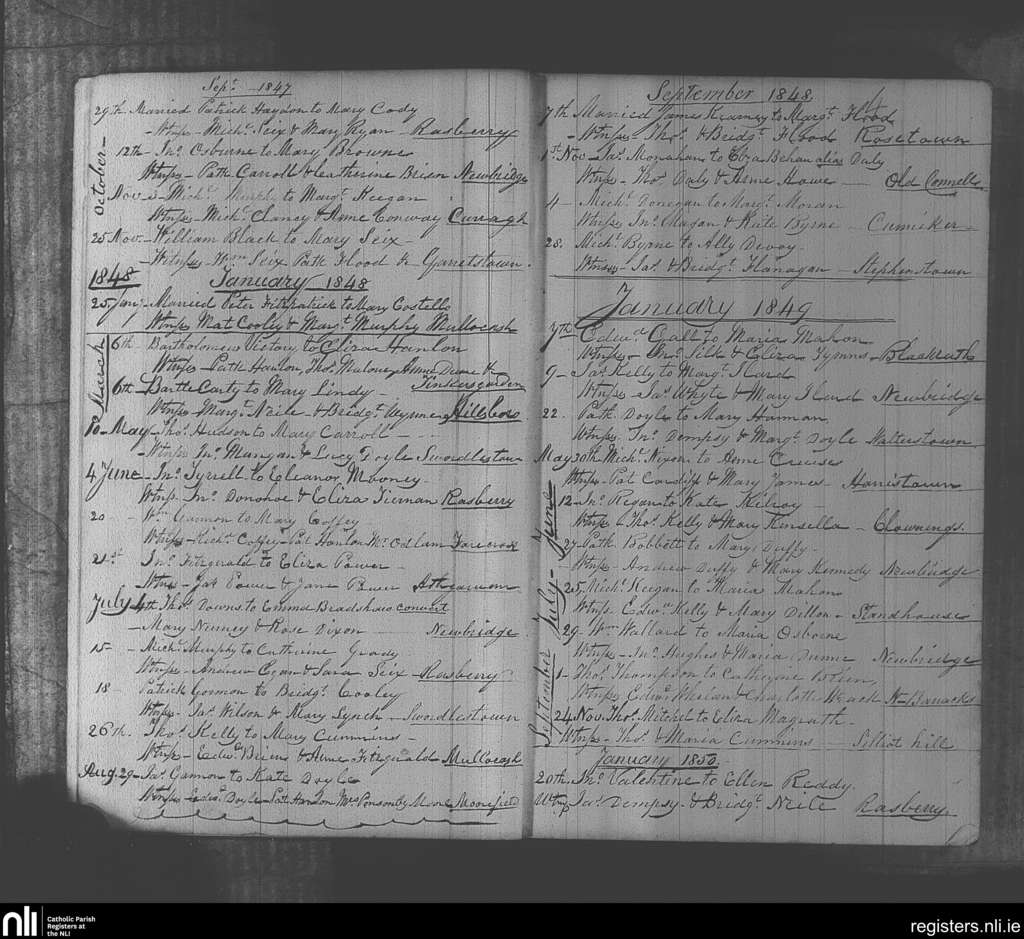 Sepr. 1847
29th Married Patrick Haydon to Mary Cody
Wtnss - Michl. Seix & Mary Ryan - Rasberry
October
12th - Jno. Osburne to Mary Browne
Wtnss - Patk Carroll & Catherine Brien Newbridge
Nov 3 - Michl. Murphy to Margt. Keegan
Wtnss - Michl. Clancy & Anne Conway Curragh
25 Nov - William Black to Mary Seix -
Witness - Wm. Seix Patk Flood Jr Garretstown.
1848 January 1848
25 Jany - Married Peter Fitzpatrick to Mary Costello
Wtnss Mat Cooley & Margt. Murphy Mullocash
March
6th Bartholomew Victory to Eliza Hanlon
Wtnss - Patk Hanlon, Thos. Malone, Anne Dunne &
Tinkersgarden
6th - Bartle Carty to Mary Lindy -
Wtnss - Margt. Neile & Bridgt. Hillsboro
10 - May - Thos. Hudson to Mary Carroll -
Wtnss Jno. Mangan & Lucy Doyle Swordlestown
4 June - Jno. Tyrrell to Eleanor Mooney -
Wtnss - Jno. Donohoe & Eliza Tiernan Rasberry
20 - Wm. Gannon to Mary Coffey
Wtnss - Richd. Coffey - Pat Hanlon Mr. Odlam
21st Jno. Fitzgerald to Eliza Power -
Wtnss - Jas. Power & Jane Power
July 4th Thos. Downs to Emma Bradshaw convert
- Mary Nenney & Rose Dixon - Newbridge
15 - Michl. Murphy to Catherine Grady
Wtnss - Andrew Egan & Sara Seix - Rasberry
18 - Patrick Gormon to Bridgt. Cooley
Wtnss - Jas. Wilson & Mary Lynch - Swordlestown
26th. Thos. Kelly to Mary Cummins -
Wtnss - Edwd. Briens & Anne Fitzgerald Mullocash
Aug. 29 - Jas. Gannon to Kate Doyle
Wtnss - Edwd. Doyle Pat. Hanlon Mrs Ponsomby Moore Moorefield
September 1848
7th Married James Kearney to Margt. Flood
- Wtnss Thos. & Bridgt. Flood Rosetown
1st Nov - Jas. Monahan to Eliza Behan alias Daly
Wtnss - Thos. Daly & Anne Howe - Old Connell
4 - Michl. Donegan to Margt. Moran
Wtnss Jno. Magan & Kate Byrne - Cumisker
28. Michl. Byrne to Ally Devoy -
Wtnss - Jas. & Bridgt. Flanagan - Stephenstown
January 1849
7th Edwd. Galt to Maria Mahon
Wtnss - Jno. Silk & Eliza Tymns - Blackrath
9 - Jas. Kelly to Margt. Hard
Wtnss - Jas. Whyte & Mary Hard Newbridge
22. Patk Doyle to Mary Hannan
Wtnss - Jno. Dempsy & Margt. Doyle Walterstown
May 30th Michl. Nixon to Anne Crewse
Wtnss - Pat Cardiff & Mary James - Harristown
June
12 - Jno. Regan to Kate Kilroy -
Wtnss Thos. Kelly & Mary Kinsella - Clownings.
27 - Patk Bobbett to Mary Duffy -
Wtnss - Andrew Duffy & Mary Kennedy Newbridge
July -
25, Michl. Keegan to Maria Mahon
Wtnss. Edwd. Kelly & Mary Dillon - Standhouse
29 - Wm Wallard to Maria Osborne
Wtnss - Jno. Hughes & Maria Dunne Newbridge
September
1 - Thos. Thompson to Catherine Brien,
Wtnss Edwd. Phelan & Charlotte N-Barracks
24 Nov. Thos. Mitchel to Eliza Magrath -
Wtnss - Thos. & Maria Cummins - Silliot hill
January 1850 -
20th - Jno. Valentine to Ellen Reddy.
Wtnss Jas. Dempsy - & Bridgt. Neile Rasberry.
nli
Catholic Parish
Registers at
the NLI
registers.nli.ie